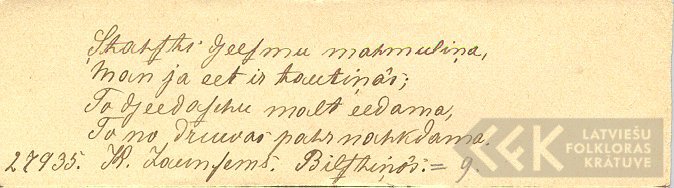 Skatſtki dſeeſmu mahmuliņa,
Man ja eet ir tautiņās;
To dſeedaſchu malt eedama,
To no druwas pahrnahkdama.
27935. K. Zaunſems. Bilſtiņōs. = 9.
LATVIEŠU
FOLKLORAS
KRĀTUVE